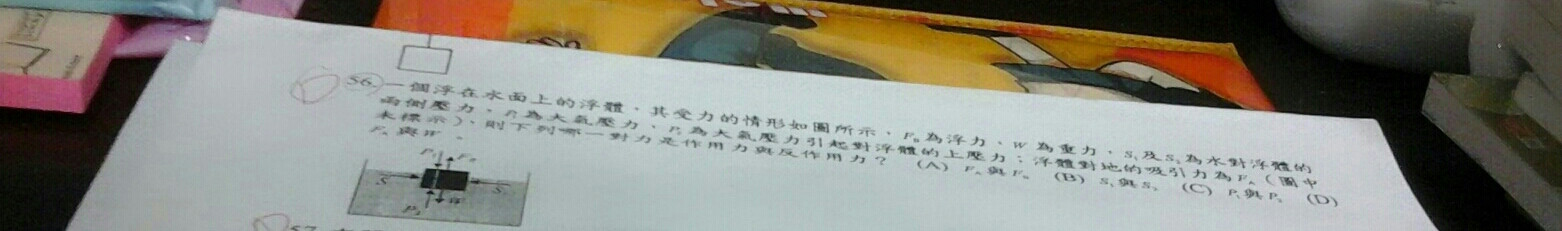 56. 一個浮在水面上的浮體，其受力的情形如圖所示，F_B為浮力、W 為重力，S₁及S₂為水對浮體的
兩側壓力，P₁為大氣壓力，P₂為大氣壓力引起對浮體的上壓力；浮體對地的吸引力為F_A（圖中
未標示），則下列哪一對力是作用力與反作用力？ (A) F_A與F_B (B) S₁與S₂ (C) P₁與P₂ (D)
F_A與W。
P₁
S
S
W
P₂
57.